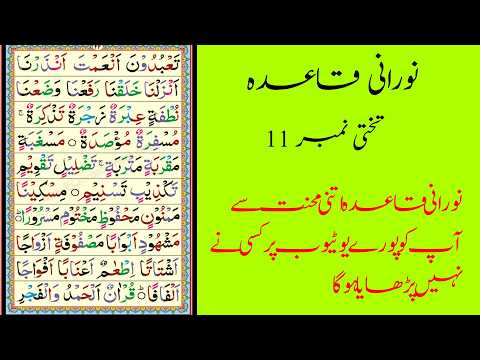 تَعْبُدُوْنَ اَنْعَمْتَ اَنْذَرْنَا
اَنْزَلْنَا خَلَقْنَا رَفَعْنَا وَضَعْنَا
نُطْفَةٍ عِبْرَةٌ زَجْرَةٌ تَذْكِرَةٌ
مُسْفِرَةٌ مُؤْصَدَةٌ مَسْغَبَةٍ
مَقْرَبَةٍ مَتْرَبَةٍ تَضْلِيْلٍ تَقْوِيْمٍ
تَكْذِيْبٍ تَسْنِيْمٍ مِسْكِيْنًا
مَمْنُوْنٍ مَحْفُوْظٍ مَخْتُوْمٍ مَسْرُوْرًا
مَشْهُوْدٍ اَبْوَابًا مَصْفُوْفَةٍ اَزْوَاجًا
اَشْتَاتًا اِطْعٰمٌ اَعْنَابًا اَفْوَاجًا
اَلْفَافًا قُرْاٰنٌ اَلْحَمْدُ وَالْفَجْرِ
نورانی قاعدہ
تختی نمبر 11
نورانی قاعدہ اتنی محنت سے
آپ کو پورے یوٹیوب پر کسی نے
نہیں پڑھایا ہوگا